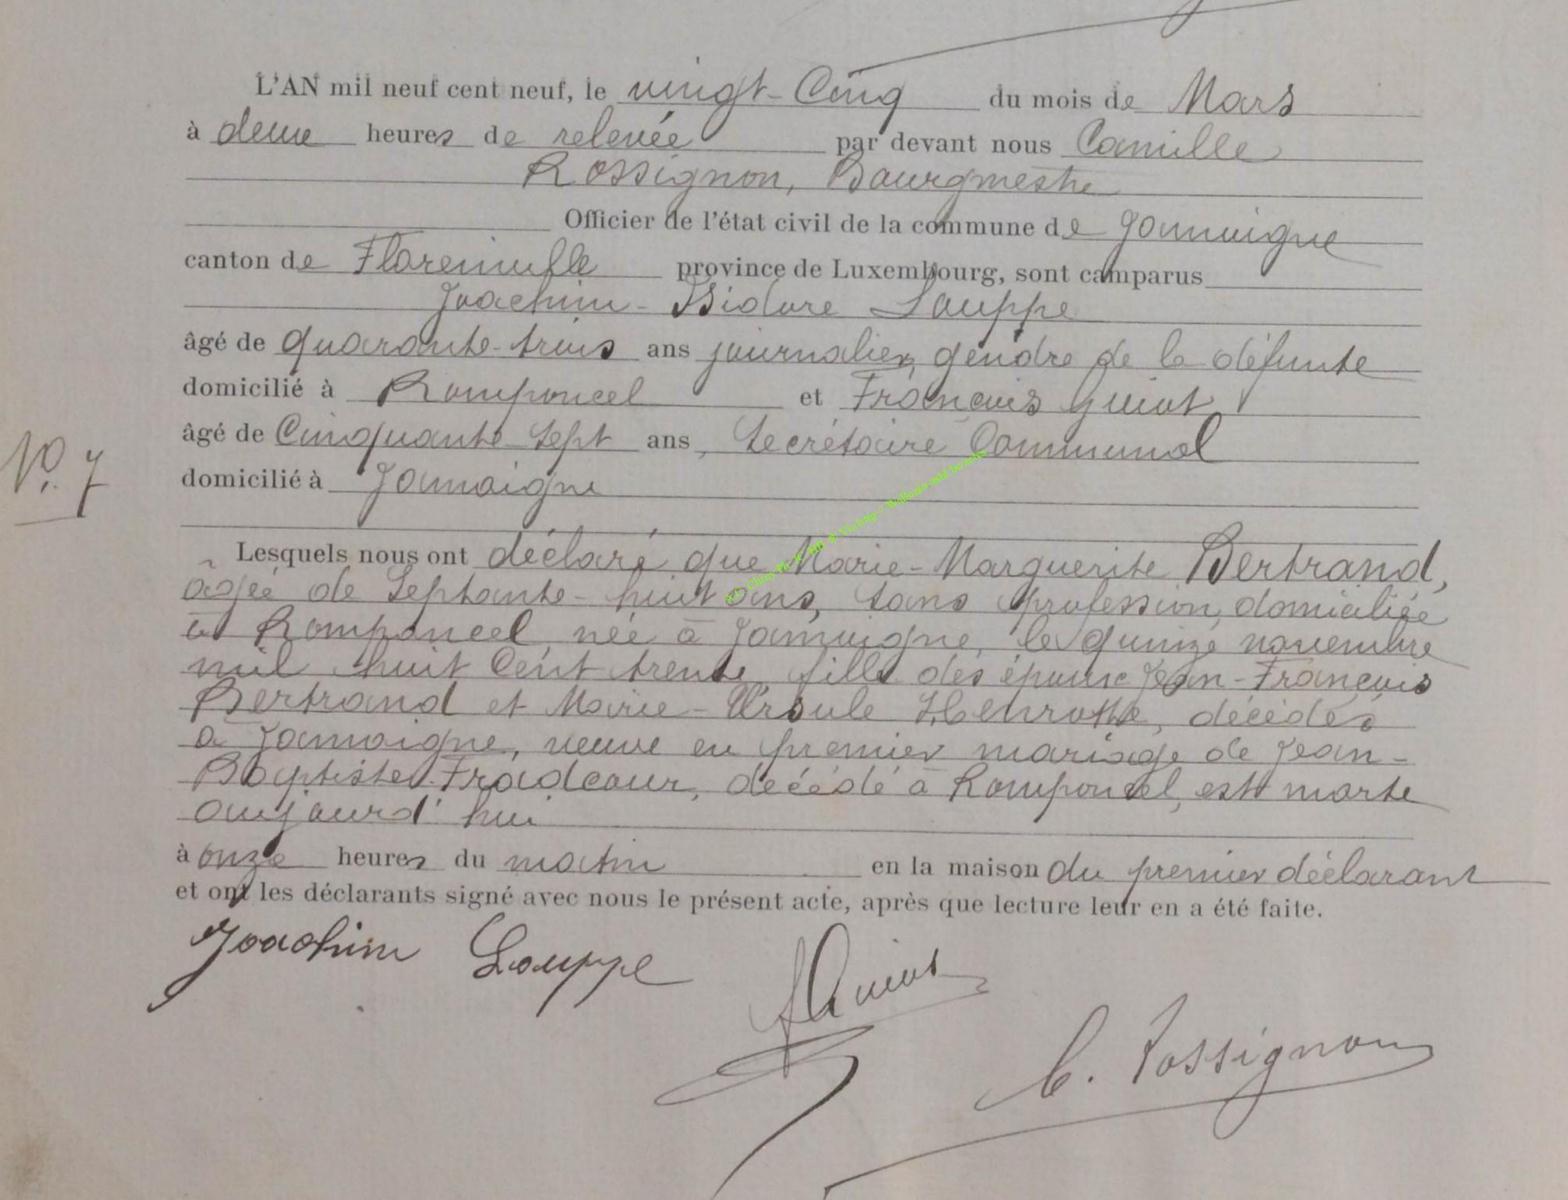 L'AN mil neuf cent neuf, le vingt-Cinq du mois de Mars
à deux heures de relevée par devant nous Camille
Rossignon, Bourgmestre
Officier de l'état civil de la commune de Jamoigne
canton de Florenville province de Luxembourg, sont comparus
Joachim-Isidore Louppe
âgé de quarante-trois ans journalier, gendre de la défunte
domicilié à Romponcel et François Guiot
âgé de Cinquante-Sept ans, Secrétaire Communal
domicilié à Jamoigne
N° 7
Lesquels nous ont déclaré que Marie-Marguerite Bertrand,
âgée de Septante-huit ans, sans profession, domiciliée
à Romponcel, née à Jamoigne, le quinze novembre
mil huit Cent trente, fille des époux Jean-François
Bertrand et Marie-Ursule Henrotte, décédés
à Jamoigne, veuve en premier mariage de Jean-
Baptiste Froidcour, décédé à Romponcel, est morte
aujourd'hui
à onze heures du matin en la maison du premier déclarant
et ont les déclarants signé avec nous le présent acte, après que lecture leur en a été faite.
Joachim Louppe
F Guiot
C. Rossignon